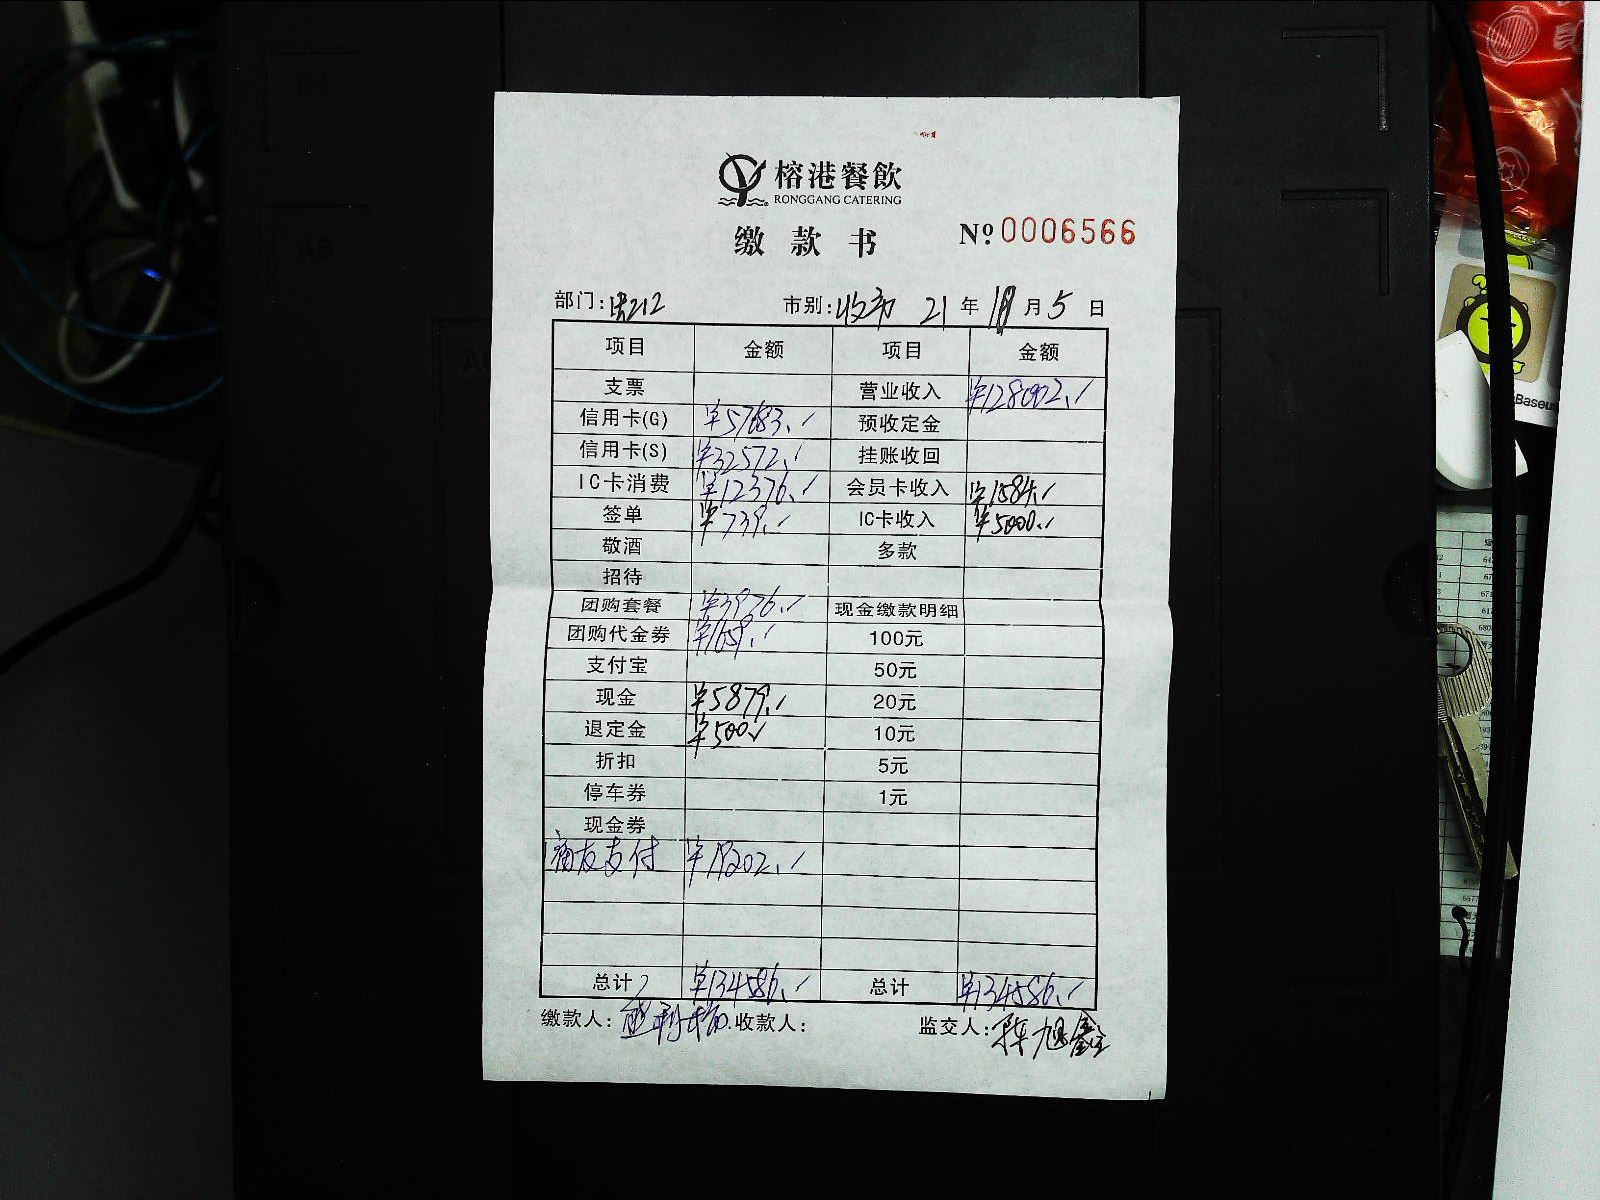 榕港餐飲
RONGGANG CATERING
缴款书
№ 0006566
部门: 市别: 收市 21 年 月 5 日
项目 金额 项目 金额
支票 营业收入 ¥128002.
信用卡(G) ¥57683. 预收定金
信用卡(S) ¥32572. 挂账收回
IC卡消费 ¥12376. 会员卡收入 ¥1584.
签单 ¥739. IC卡收入 ¥5000.
敬酒 多款
招待
团购套餐 ¥3976. 现金缴款明细
团购代金券 ¥1659. 100元
支付宝 50元
现金 ¥5879. 20元
退定金 ¥500 10元
折扣 5元
停车券 1元
现金券
友支付 ¥19202.
总计 ¥134586. 总计 ¥134586.
缴款人: 收款人: 监交人: 陈旭鑫
Baseus